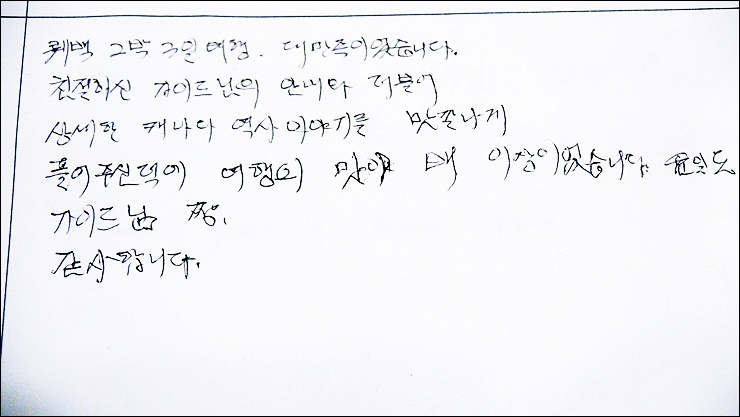 퀘백 2박 3일 여행. 대만족이었습니다.
친절하신 가이드님의 안내와 더불어
상세한 캐나다 역사이야기를 맛깔나게
풀어주신덕에 여행의 맛이 배 이상이었습니다
가이드님 짱.
감사합니다.